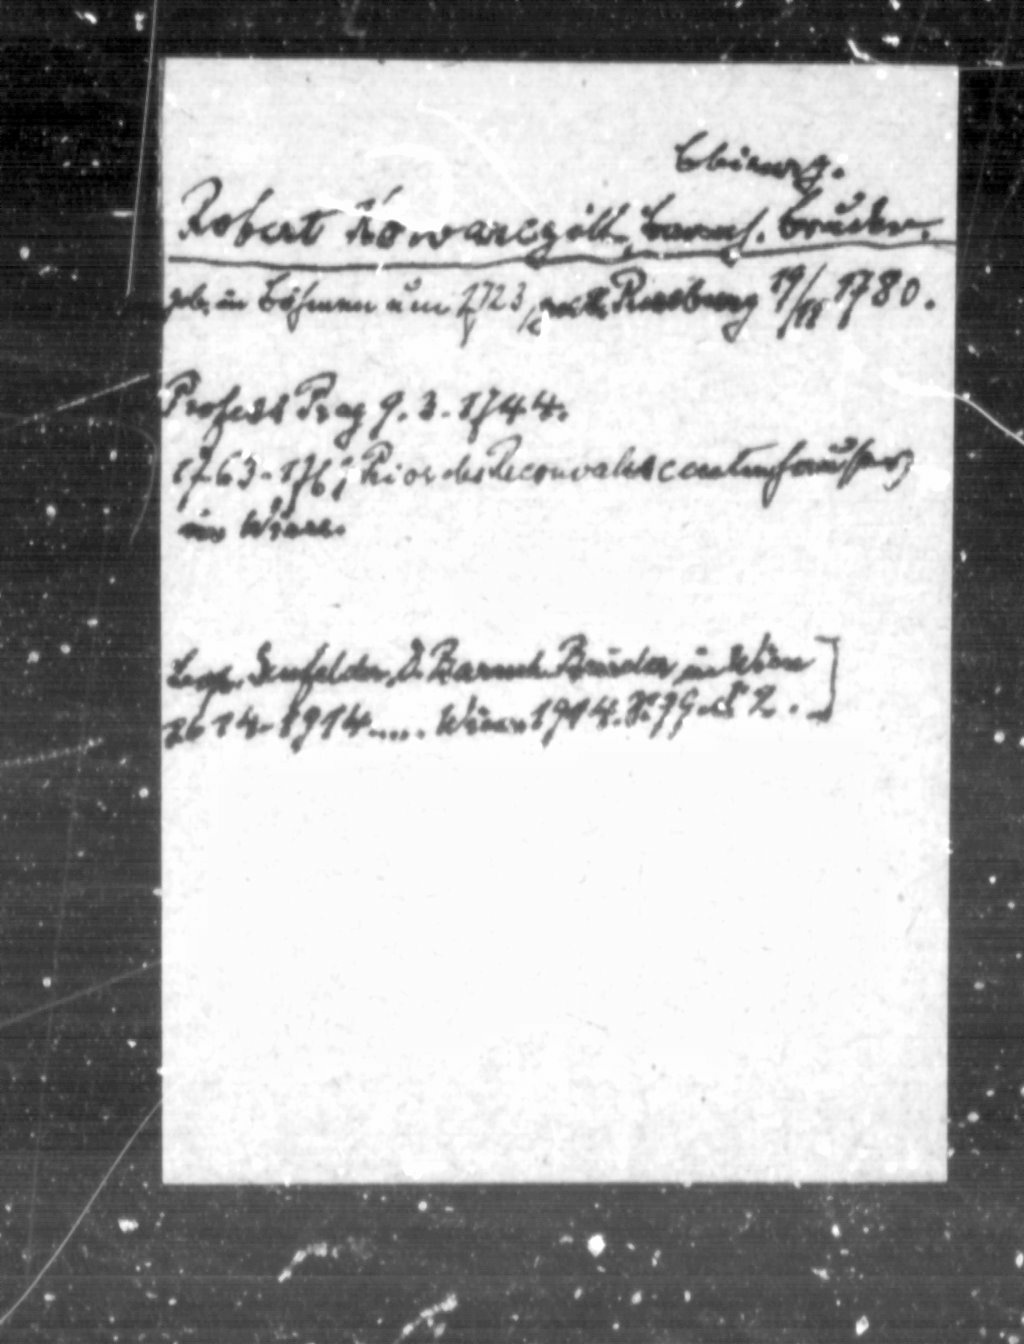 Chirurg.
Robert Kowarczik, barmh. Bruder.
geb. in Böhmen um 1723, gest. 19/ 1780.
Profess Prag 9. 3. 1744.
1763-176 Prior des Reconvalescentenhauses
in Wien.
Senfelder, D. Barmh. Brüder in Wien
1614-1914.... Wien 1914. S. 79.